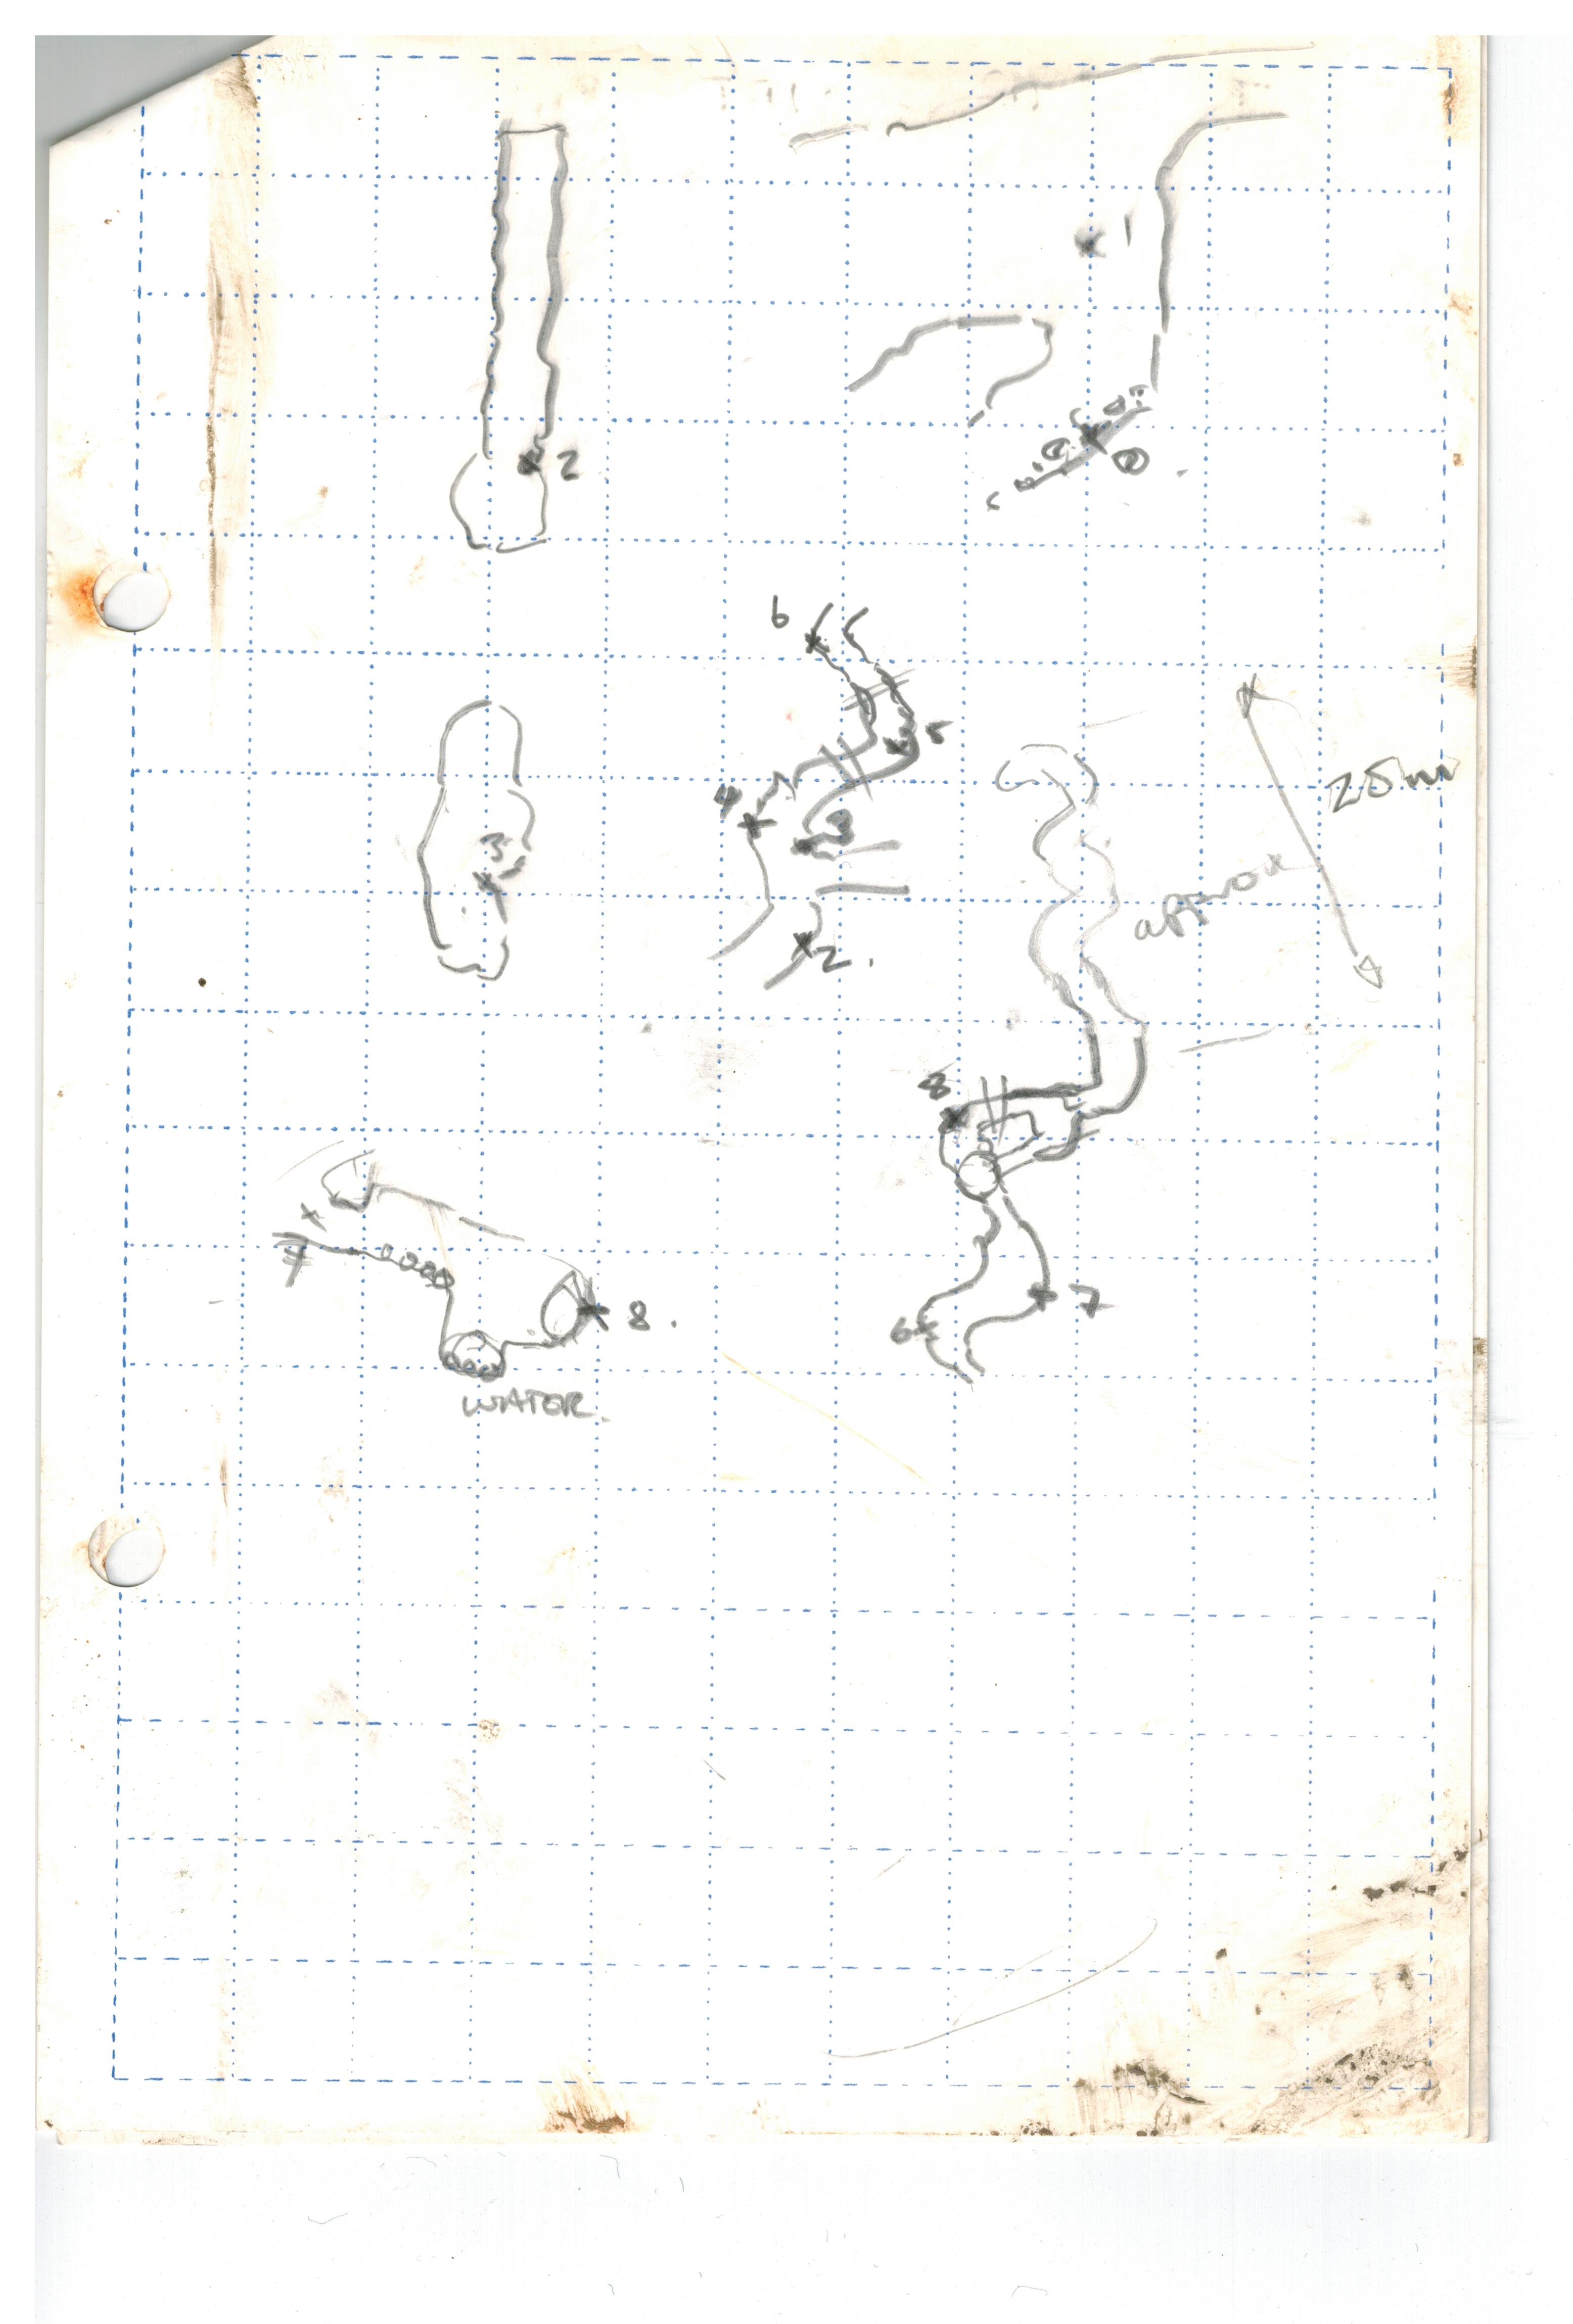 1
2
6
5
4
3
3
2.
25m
approx
8
7
8.
6
7
WATER.